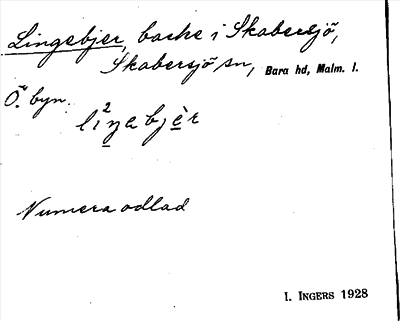 Lingebjer, backe i Skabersjö,
Skabersjö sn, Bara hd, Malm. l.
Ö. byn.
li²ŋabjèr
Numera odlad
I. INGERS 1928